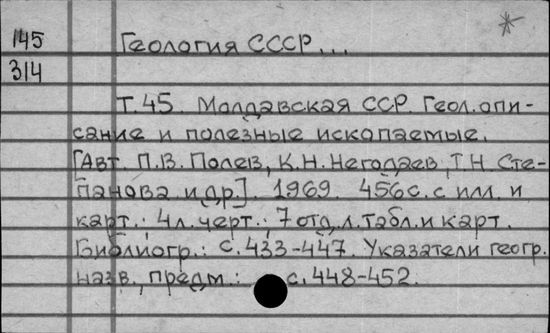 145 Геология СССР...
314
Т.45. Молдавская ССР. Геол. опи-
сание и полезные ископаемые.
[Авт. П.В. Полев, К.Н. Негодаев, Т.Н. Сте-
панова и др.]. 1969. 456 с. с илл. и
карт.; 4 л. черт.; 7 отд. л. табл. и карт.
Библиогр.: с. 433-447. Указатели геогр.
назв., предм.: с. 448-452.